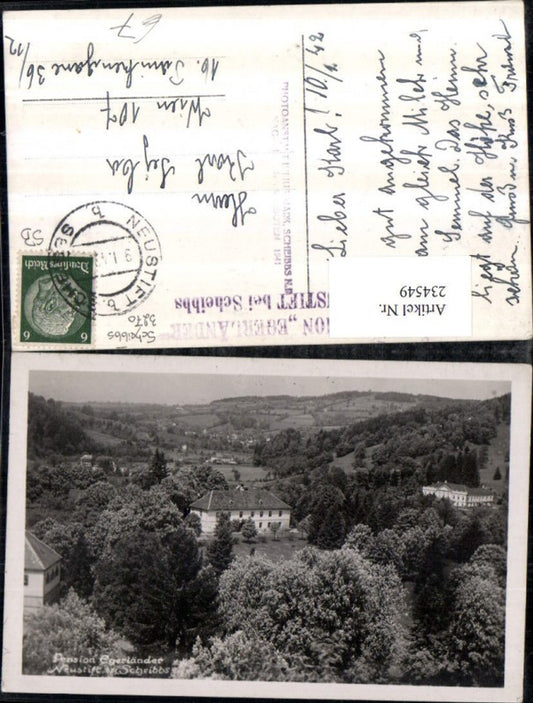 67
Lieber Karl! 10/1. 42
gut angekommen
am gleich Milch und
Semmel. Das Heim
liegt auf der Höhe, sehr
schön.
Herrn
Karl
Wien 107
16. 36/
12
NEUSTIFT b.
b
9.1.4
SB
Deutsches Reich
6 6
Scheibbs
3270
PENSION „EGERLÄNDER"
NEUSTIFT bei Scheibbs
SCHEIBBS N.D.
Artikel Nr.
234549
Pension Egerländer
Neustift b. Scheibbs